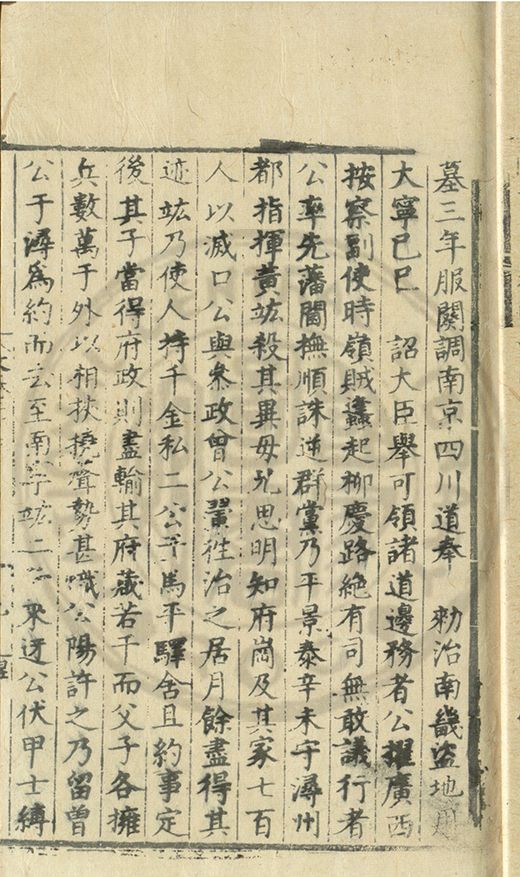 墓三年服闋調南京四川道奉　勑治南畿盜地用
大寧己巳　詔大臣舉可領諸道邊務者公擢廣西
按察副使時嶺賊蠭起柳慶路絶有司無敢議行者
公率先藩閫撫順誅逆群黨乃平景泰辛未守潯州
都指揮黄竑殺其異母兄思明知府崗及其家七百
人以滅口公與叅政曾公翼徃治之居月餘盡得其
迹竑乃使人持千金私二公于馬平驛舍且約事定
後其子當得府政則盡輸其府藏若干而父子各擁
兵數萬于外以相扶撓聲勢甚熾公陽許之乃留曾
公于潯為約而去至南寧竑二子來迓公伏甲士縛